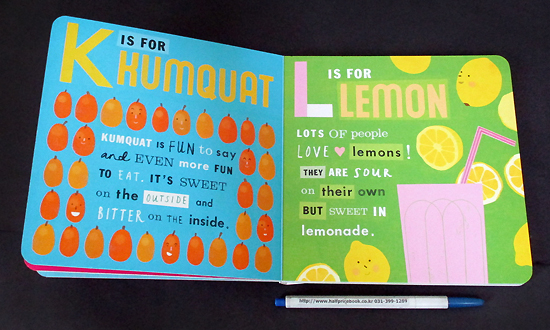 K IS FOR
KUMQUAT
KUMQUAT IS FUN to say
and EVEN more FUN
TO EAT. IT'S SWEET
on the OUTSIDE and
BITTER on THE inside.
L IS FOR
LEMON
LOTS OF people
LOVE lemons!
THEY ARE SOUR
on their own
BUT SWEET IN
lemonade.
http://www.halfpricebook.co.kr 031-399-1289